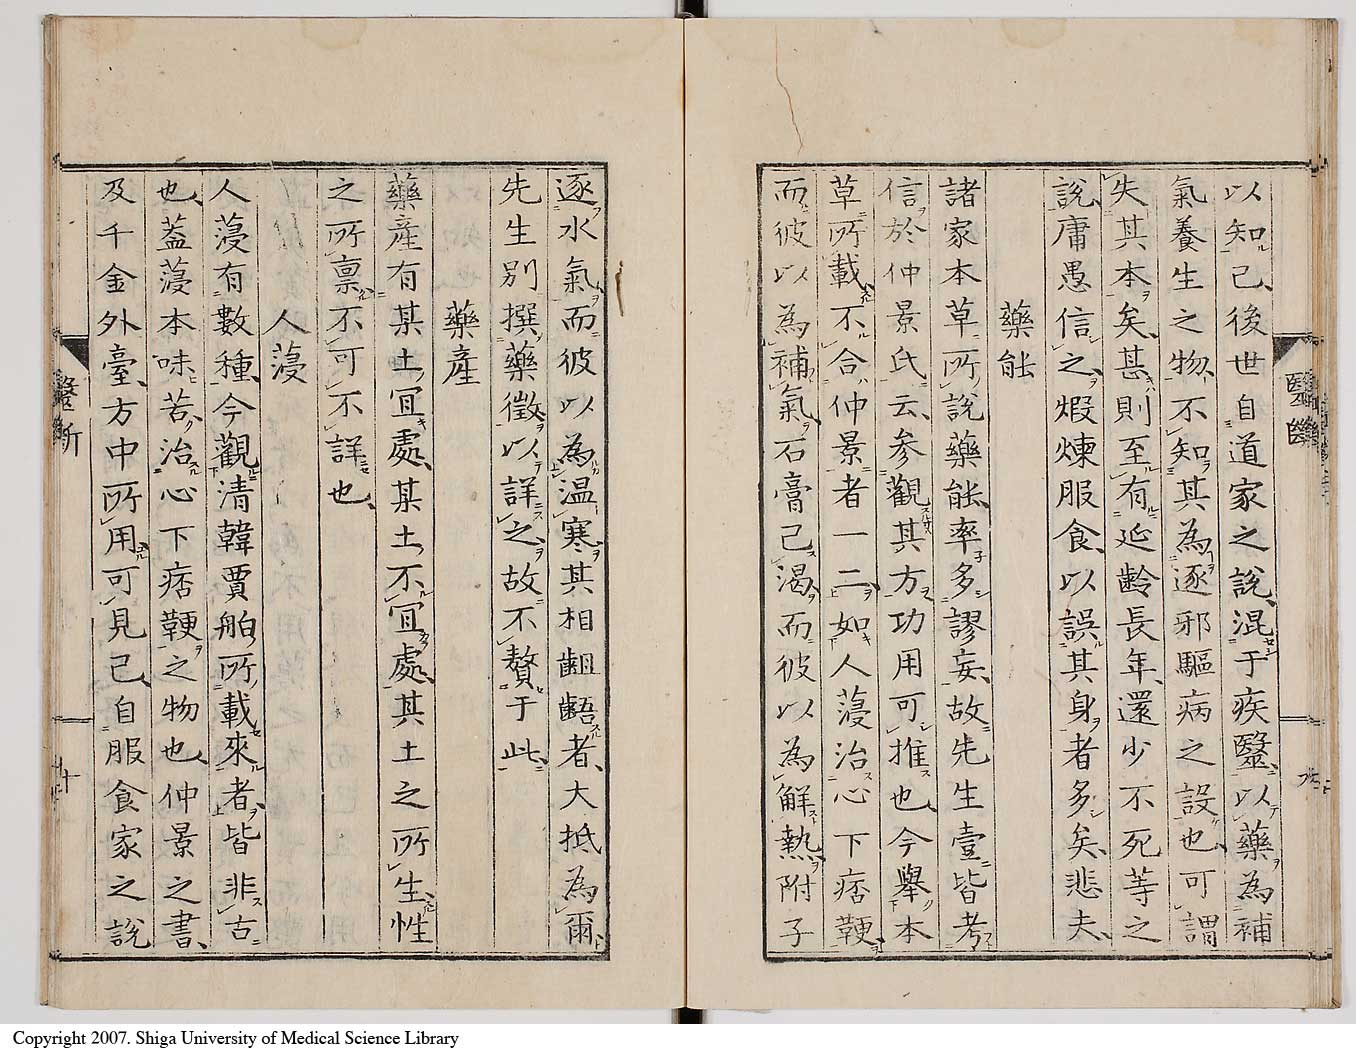 以知已後世自道家之說混于疾毉以藥為補
氣養生之物不知其為逐邪驅病之設也可謂
失其本矣甚則至有延齡長年還少不死等之
說庸愚信之煆煉服食以誤其身者多矣悲夫
藥能
諸家本草所說藥能率多謬妄故先生壹皆考
信於仲景氏云參觀其方功用可推也今舉本
草所載不合仲景者一二如人薓治心下痞鞕
而彼以為補氣石膏已渴而彼以為解熱附子
毉斷
九
逐水氣而彼以為溫寒其相齟齬者大抵為爾
先生別撰藥徵以詳之故不贅于此
藥產
藥產有某土宜處某土不宜處其土之所生性
之所稟不可不詳也
人薓
人薓有數種今觀清韓賈舶所載來者皆非古
也蓋薓本味苦治心下痞鞕之物也仲景之書
及千金外臺方中所用可見已自服食家之說
毉斷
十
Copyright 2007. Shiga University of Medical Science Library